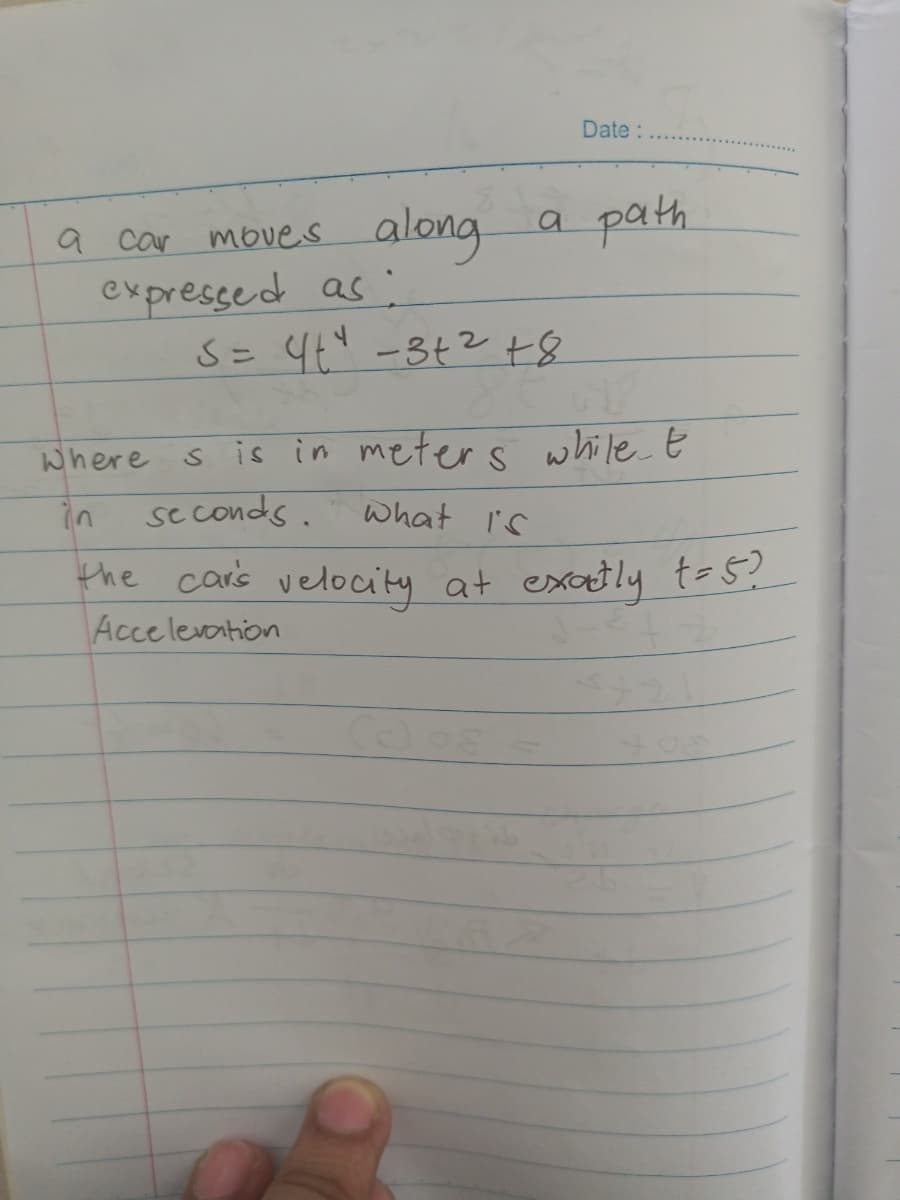 Date : ........................
a car moves along a path
expressed as :
s = 4t⁴ - 3t² + 8
where s is in meters while t
in seconds. What is
the car's velocity at exactly t = 5?
Acceleration